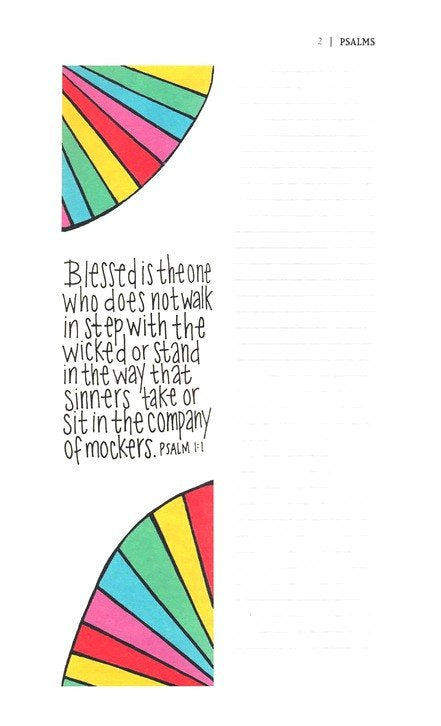 2 | PSALMS
Blessed is the one
who does not walk
in step with the
wicked or stand
in the way that
sinners take or
sit in the company
of mockers. PSALM 1:1